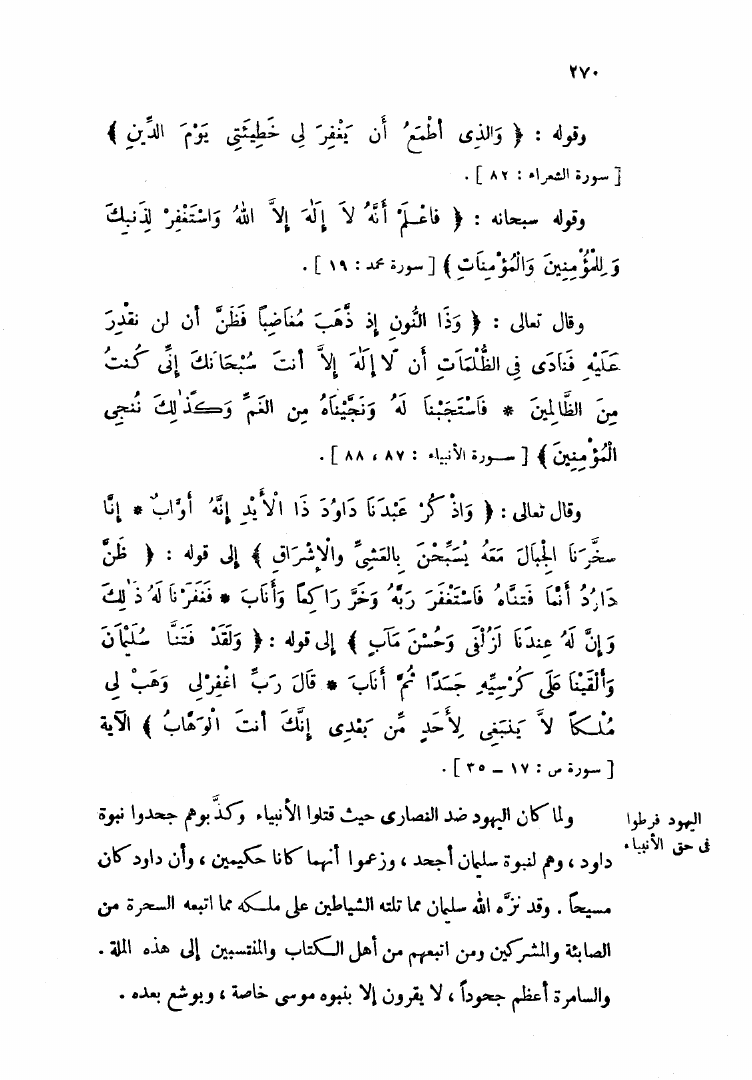 ٢٧٠
وقوله : ﴿ وَالذِى أَطْمَعُ أَن يَغْفِرَ لِى خَطِيئَتِى يَوْمَ الدِّينِ ﴾
[ سورة الشعراء : ٨٢ ] .
وقوله سبحانه : ﴿ فَاعْلَمْ أَنَّهُ لَا إِلَٰهَ إِلاَّ اللهُ وَاسْتَغْفِرْ لِذَنبِكَ
وَلِلْمُؤْمِنِينَ وَالْمُؤْمِنَاتِ ﴾ [ سورة محمد : ١٩ ] .
وقال تعالى : ﴿ وَذَا النُّونِ إِذ ذَّهَبَ مُغَاضِبًا فَظَنَّ أَن لن نقْدِرَ
عَلَيْهِ فَنَادَى فِى الظُّلُمَاتِ أَن لَا إِلَٰهَ إِلاَّ أَنتَ سُبْحَانَكَ إِنِّى كُنتُ
مِنَ الظَّالِمِينَ * فَاسْتَجَبْنَا لَهُ وَنَجَّيْنَاهُ مِن الغَمِّ وَكَذَٰلِكَ نُنجِى
الْمُؤْمِنِينَ ﴾ [ سورة الأنبياء : ٨٧ ، ٨٨ ] .
وقال تعالى : ﴿ وَاذْكُرْ عَبْدَنَا دَاوُدَ ذَا الْأَيْدِ إِنَّهُ أَوَّابٌ * إِنَّا
سخَّرْنَا الْجِبَالَ مَعَهُ يُسَبِّحْنَ بِالعَشِىِّ والْإِشْرَاقِ ﴾ إلى قوله : ﴿ ظَنَّ
دَاوُدُ أَنَّمَا فَتنَّاهُ فَاسْتَغْفَرَ رَبَّهُ وَخَرَّ رَاكِعًا وَأَنَابَ * فَغَفَرْنَا لَهُ ذَٰلِكَ
وَإِنَّ لَهُ عِندَنَا لَزُلْفَى وَحُسْنَ مَآبٍ ﴾ إلى قوله : ﴿ وَلَقَدْ فَتَنَّا سُلَيْمَانَ
وَأَلْقَيْنَا عَلَى كُرْسِيِّهِ جَسَدًا ثُمَّ أَنَابَ * قَالَ رَبِّ اغْفِرْلِى وَهَبْ لِى
مُلْكاً لاَّ يَنبَغِى لِأَحَدٍ مِّن بَعْدِى إِنَّكَ أَنتَ الْوَهَّابُ ﴾ الآية
[ سورة ص : ١٧ – ٣٥ ] .
ولما كان اليهود ضد النصارى حيث قتلوا الأنبياء وكذَّبوهم جحدوا نبوة
داود ، وهم لنبوة سليمان أجحد ، وزعموا أنهما كانا حكيمين ، وأن داود كان
مسيحاً . وقد نزَّه الله سليمان مما تلته الشياطين على ملكه مما اتبعه السحرة من
الصابئة والمشركين ومن اتبعهم من أهل الكتاب والمنتسبين إلى هذه الملة .
والسامرة أعظم جحوداً ، لا يقرون إلا بنبوه موسى خاصة ، ويوشع بعده .
اليهود فرطوا
فى حق الأنبياء